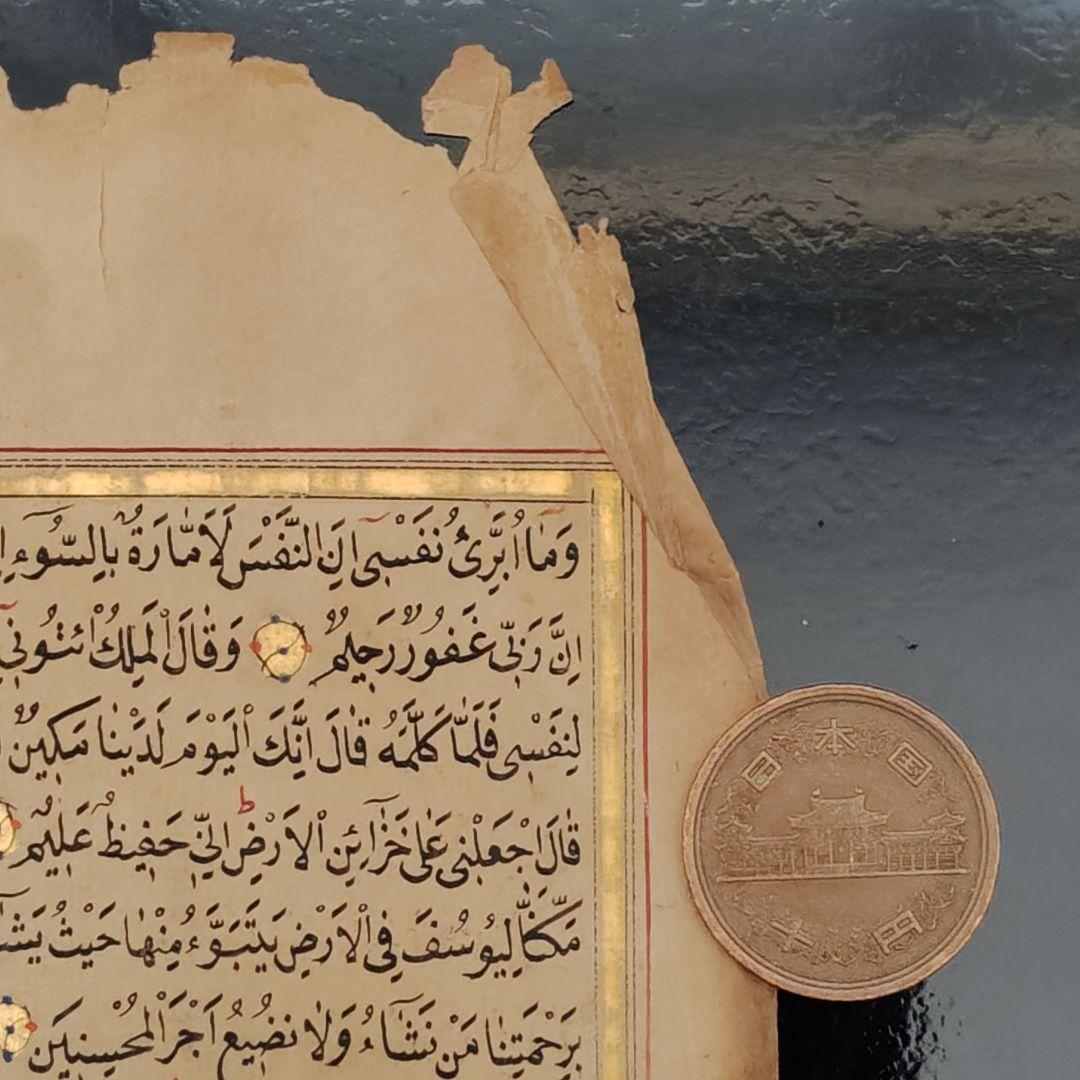 وَمَا اُبَرِّئُ نَفْسٖى اِنَّ النَّفْسَ لَاَمَّارَةٌ بِالسُّوءِ
اِنَّ رَبّٖى غَفُورٌ رَحٖيمٌ وَقَالَ الْمَلِكُ ائْتُونٖى
لِنَفْسٖى فَلَمَّا كَلَّمَهُ قَالَ اِنَّكَ الْيَوْمَ لَدَيْنَا مَكٖينٌ
قَالَ اجْعَلْنٖى عَلٰى خَزَٓائِنِ الْاَرْضِ ط اِنّٖى حَفٖيظٌ عَلٖيمٌ
مَكَّنَّا لِيُوسُفَ فِى الْاَرْضِ يَتَبَوَّءُ مِنْهَا حَيْثُ
بِرَحْمَتِنَا مَنْ نَشَٓاءُ وَلَا نُضٖيعُ اَجْرَ الْمُحْسِنٖينَ
日本国
十円